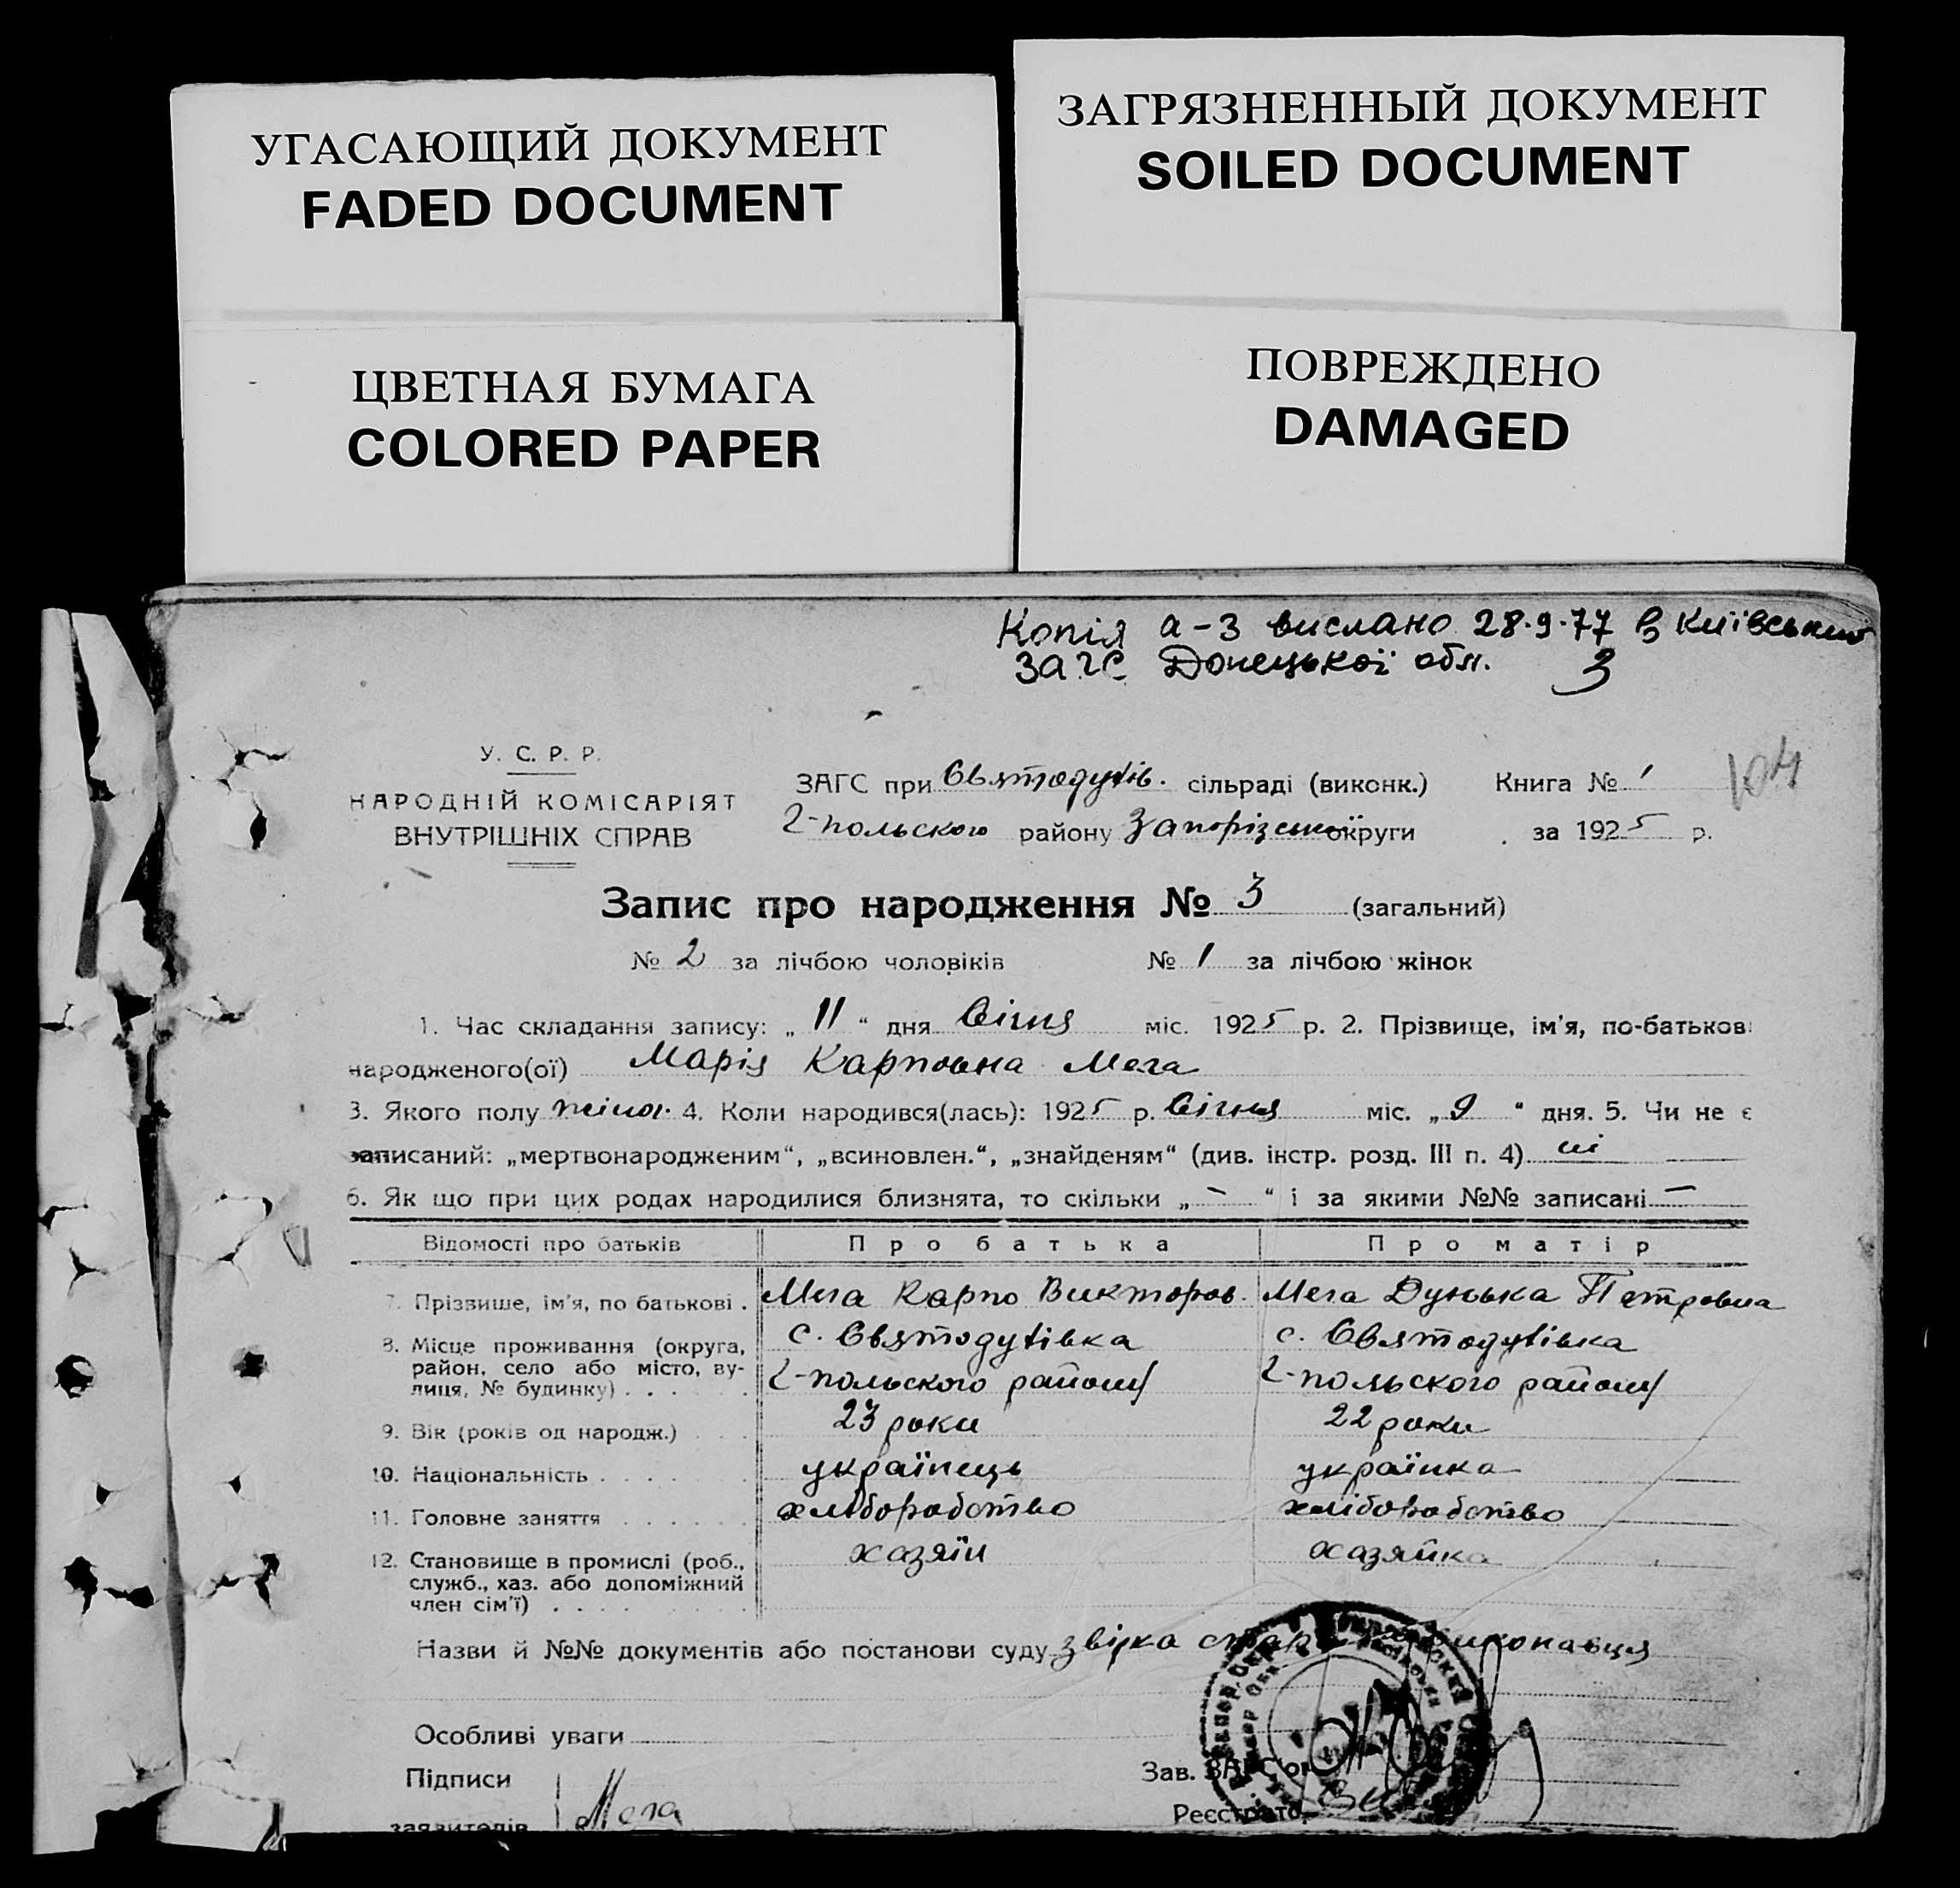 УГАСАЮЩИЙ ДОКУМЕНТ
FADED DOCUMENT
ЗАГРЯЗНЕННЫЙ ДОКУМЕНТ
SOILED DOCUMENT
ЦВЕТНАЯ БУМАГА
COLORED PAPER
ПОВРЕЖДЕНО
DAMAGED
Копія а-з вислано 28.9.77 в Київський
ЗАГС Донецької обл. З
104
У. С. Р. Р.
НАРОДНІЙ КОМІСАРІЯТ
ВНУТРІШНІХ СПРАВ
ЗАГС при Святодухів. сільраді (виконк.) Книга № 1
Г-польского району Запорізської округи за 1925 р.
Запис про народження № 3 (загальний)
№ 2 за лічбою чоловіків № 1 за лічбою жінок
1. Час складання запису: „ 11 “ дня Січня міс. 1925 р. 2. Прізвище, ім'я, по-батькові
народженого(ої) Марія Карповна Мега
3. Якого полу жіноч. 4. Коли народився(лась): 1925 р. Січня міс. „ 9 “ дня. 5. Чи не є
записаний: „мертвонародженим“, „всиновлен.“, „знайденям“ (див. інстр. розд. III п. 4) ні
6. Як що при цих родах народилися близнята, то скільки „ – “ і за якими №№ записані –
Відомості про батьків Про батька Про матір
7. Прізвище, ім'я, по батькові . Мега Карпо Викторов. Мега Дунька Петровна
8. Місце проживання (округа, район, село або місто, вулиця, № будинку) . . . с. Святодухівка Г-польского району с. Святодухівка Г-польского району
9. Вік (років од народж.) . . . 23 роки 22 роки
10. Національність . . . . . українець українка
11. Головне заняття . . . . . . хліборобство хліборобство
12. Становище в промислі (роб., служб., хаз. або допоміжний член сім'ї) . . . . хазяїн хазяйка
Назви й №№ документів або постанови суду звідка виконавця
Особливі уваги
Підписи
заявителів Мега
Зав. ЗАГС'ом
Реєстратор